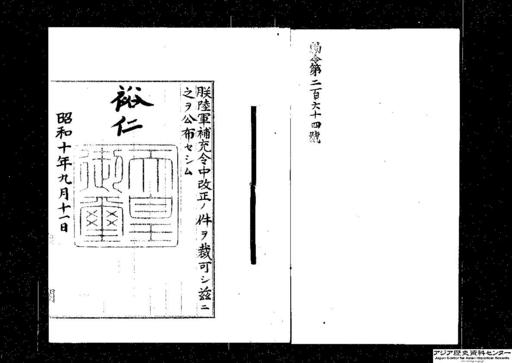 勅令第二百六十四號
朕陸軍補充令中改正ノ件ヲ裁可シ茲ニ
之ヲ公布セシム
裕仁
天皇御璽
昭和十年九月十一日
アジア歴史資料センター
Japan Center for Asian Historical Records